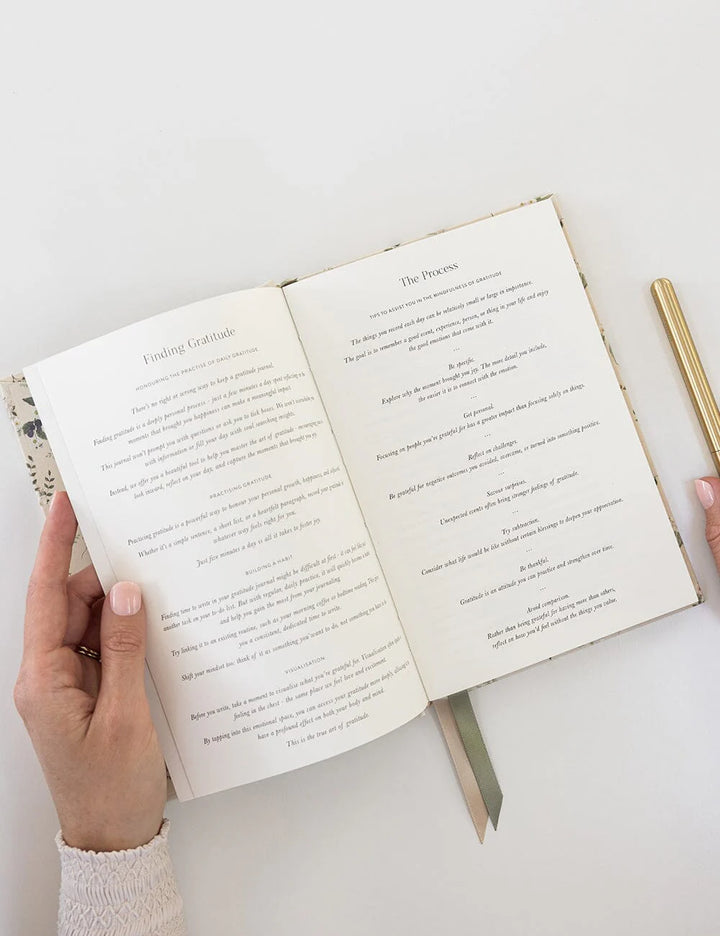 Finding Gratitude
HONOURING THE PRACTISE OF DAILY GRATITUDE
There's no right or wrong way to keep a gratitude journal.
Finding gratitude is a deeply personal process - just a few minutes a day spent reflecting on the
moments that brought you happiness can make a meaningful impact.
This journal won't prompt you with questions or ask you to tick boxes. We don't
with information or fill your day with soul searching insight.
Instead, we offer you a beautiful tool to help you master the art of gratitude -
look inward, reflect on your day, and capture the moments that brought you joy.
PRACTISING GRATITUDE
Practising gratitude is a powerful way to honour your personal growth, happiness and
Whether it's a simple sentence, a short list, or a heartfelt paragraph, record your gratitude in
whatever way feels right for you.
Just five minutes a day is all it takes to foster joy.
BUILDING A HABIT
Finding time to write in your gratitude journal might be difficult at first - it can feel like
another task on your to-do list. But with regular, daily practice, it will quickly become
and help you gain the most from your journaling.
Try linking it to an existing routine, such as your morning coffee or bedtime reading. This
you a consistent, dedicated time to write.
Shift your mindset too: think of it as something you want to do, not something you have to do.
VISUALISATION
Before you write, take a moment to visualise what you're grateful for. Visualisation
feeling in the chest - the same place we feel love and excitement.
By tapping into this emotional space, you can access your gratitude more deeply, allowing it
have a profound effect on both your body and mind.
This is the true art of gratitude.
The Process
TIPS TO ASSIST YOU IN THE MINDFULNESS OF GRATITUDE
The things you record each day can be relatively small or large in importance.
The goal is to remember a good event, experience, person, or thing in your life and enjoy
the good emotions that come with it.
...
Be specific.
Explore why the moment brought you joy. The more detail you include,
the easier it is to connect with the emotion.
...
Get personal.
Focusing on people you're grateful for has a greater impact than focusing solely on things.
...
Reflect on challenges.
Be grateful for negative outcomes you avoided, overcame, or turned into something positive.
...
Savour surprises.
Unexpected events often bring stronger feelings of gratitude.
...
Try subtraction.
Consider what life would be like without certain blessings to deepen your appreciation.
...
Be thankful.
Gratitude is an attitude you can practise and strengthen over time.
...
Avoid comparison.
Rather than being grateful for having more than others,
reflect on how you'd feel without the things you value.